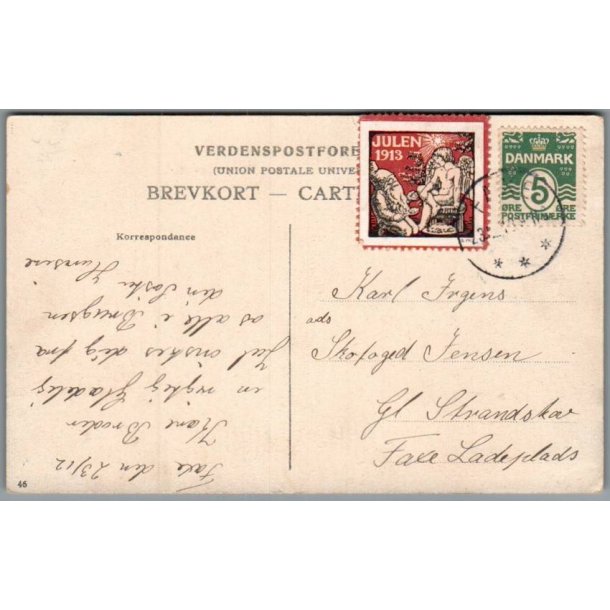 VERDENSPOSTFORE
(UNION POSTALE UNIVER
BREVKORT — CART
JULEN
1913
DANMARK
5
ØRE
ØRE
POSTFRIMÆRKE
Korrespondance
Faxe den 23/12
Kære Broder
en rigtig Glædelig
Jul ønskes dig fra
os alle i Brugsen
din Søster Hansine
Karl Irgens
ads
Skovfoged Jensen
Gl Strandskov
Faxe Ladeplads
46